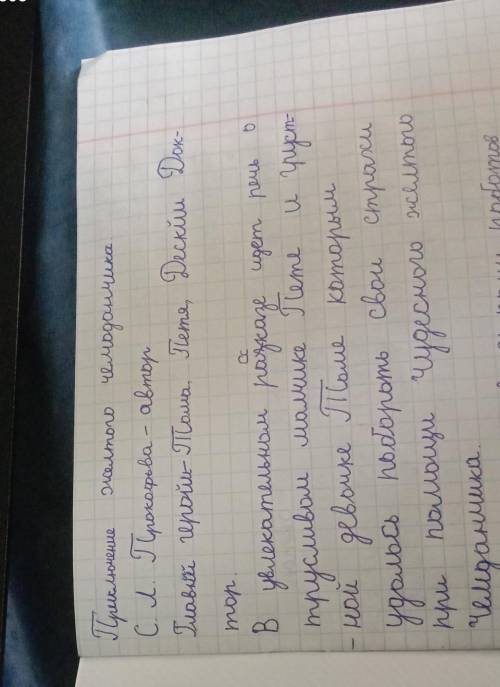 Приключение желтого чемоданчика.
С. Л. Прокофьва - автор
Главый герой - Тома, Петя, Деский Док-
тор.
В увлекательном расказе идет речь о
трусливом малчике Пете и груст-
- ной девочке Томе каторым
удолось пабороть свои страхи
при помощи чудесного желтого
чемданчика.